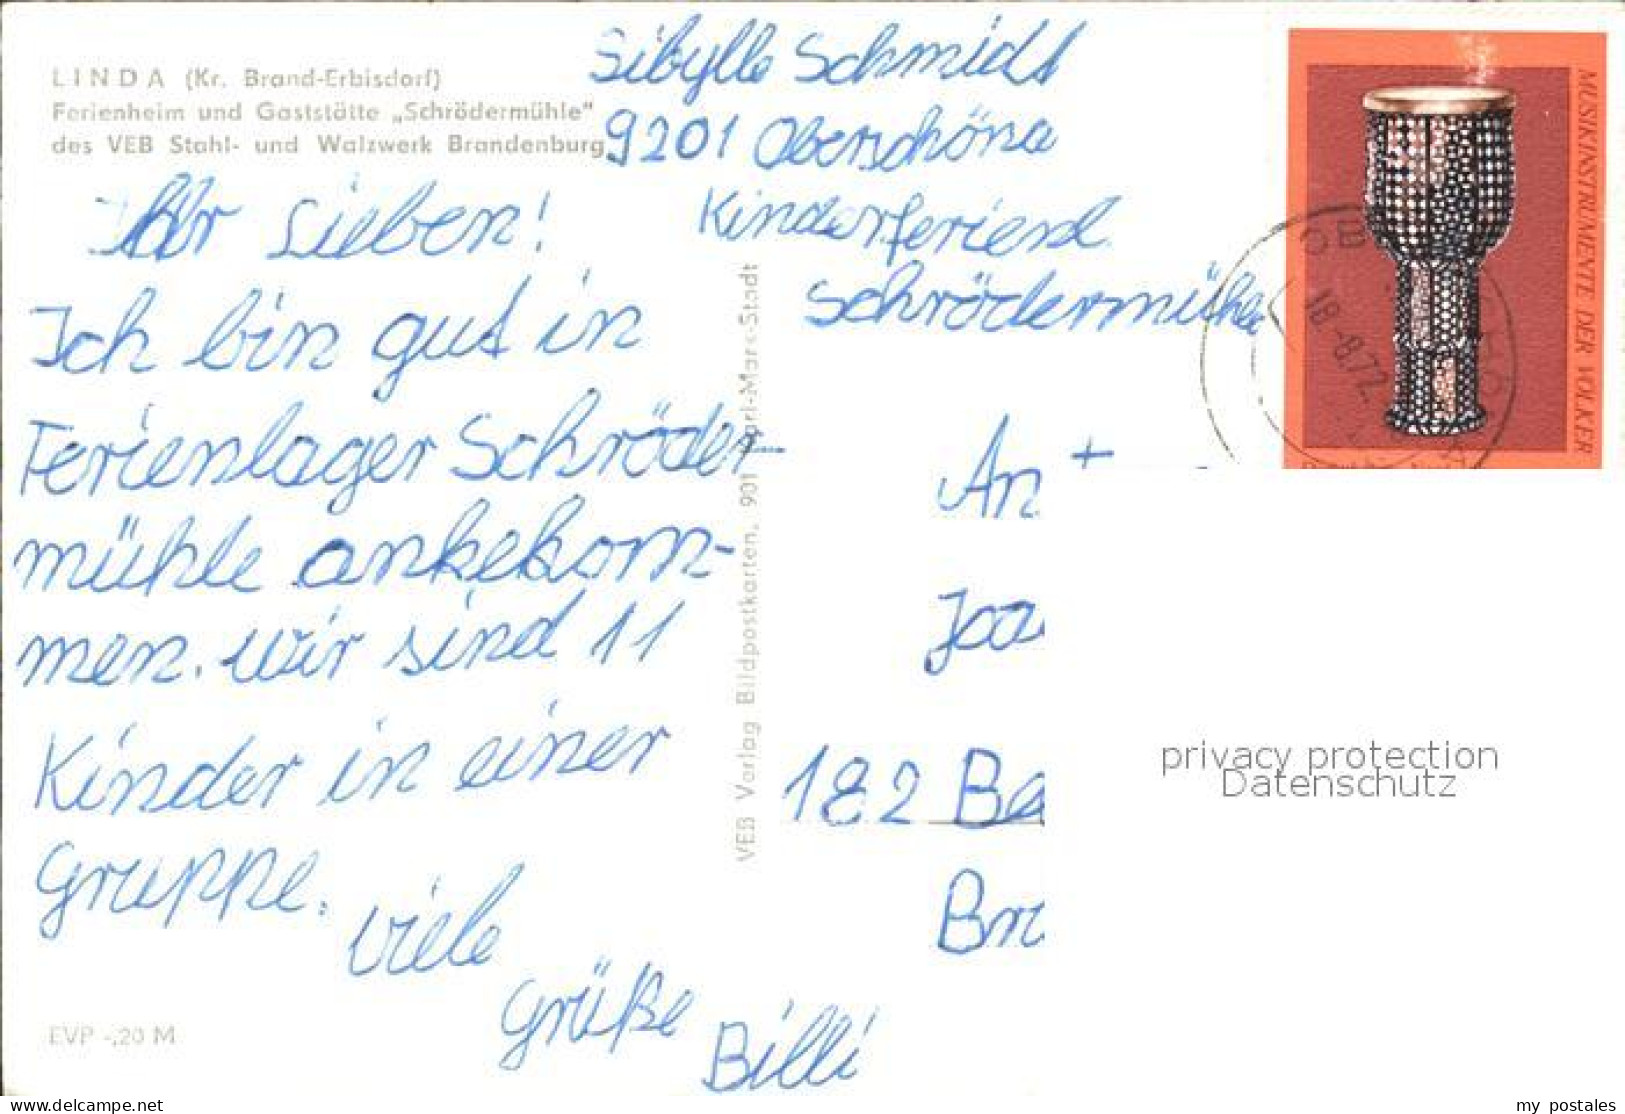 LINDA (Kr. Brand-Erbisdorf)
Ferienheim und Gaststätte „Schrödermühle"
des VEB Stahl- und Walzwerk Brandenburg
Sibylle Schmidt
9201 Oberschöna
Kinderferienl
Schrödermühle
Ihr Lieben!
Ich bin gut in
Ferienlager Schröder-
mühle ankekom-
men. Wir sind 11
Kinder in einer
Gruppe.
Viele
Grüße
Billi
EVP -,20 M
VEB Verlag Bildpostkarten, 901 Karl-Marx-Stadt
MUSIKINSTRUMENTE DER VÖLKER
18.-8.72
An
182 Be
privacy protection
Datenschutz
www.delcampe.net
my_postales